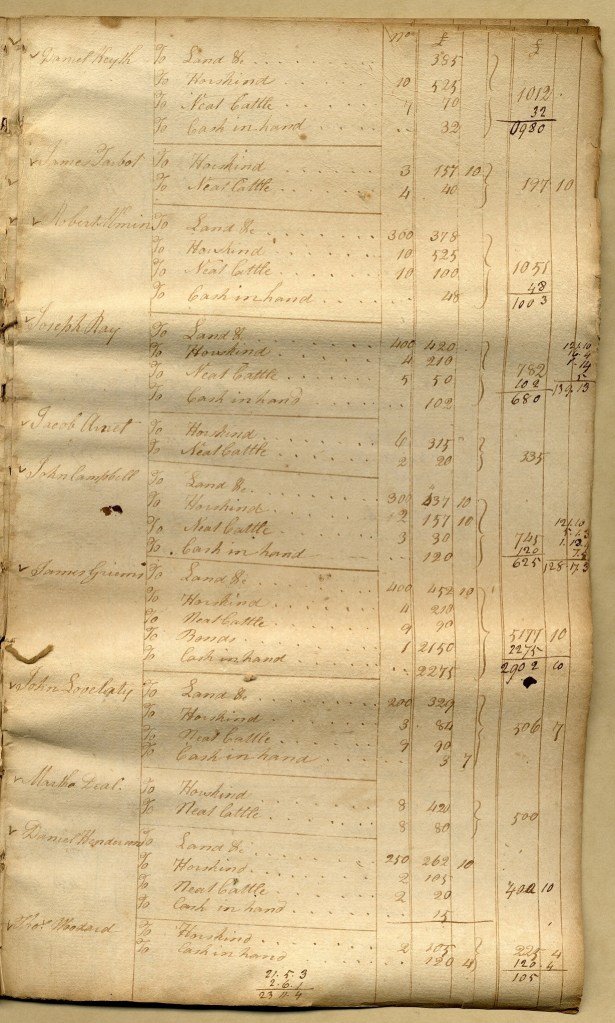 No £ £
Daniel Keyth To Land &c. 385
To Horskind 10 525
To Neat Cattle 7 70 1012
To Cash in hand 32 32
0980
James Talbot To Horskind 3 157 10
To Neat Cattle 4 40 197 10
Robert To Land &c. 300 378
To Horskind 10 525
To Neat Cattle 10 100 1051
To Cash in hand 48 48
1003
Joseph Ray To Land &c. 400 420
To Horskind 4 210
To Neat Cattle 5 50 782
To Cash in hand 102 102
680 139 13
Jacob To Horskind 6 315
To Neat Cattle 2 20 335
John Campbell To Land &c. 300 437 10
To Horskind 157 10
To Neat Cattle 3 30 745
To Cash in hand 120 120
625 128 17 3
James To Land &c. 400 452 10
To Horskind 4 210
To Neat Cattle 9 90
To Bonds 1 2150 5177 10
To Cash in hand 2275 2275
2902 10
John Lovelaty To Land &c. 200 329
To Horskind 3 84
To Neat Cattle 9 90 506 7
To Cash in hand 3 7
Martha Deal To Horskind 8 420
To Neat Cattle 8 80 500
Daniel Henderson To Land &c. 250 262 10
To Horskind 2 105
To Neat Cattle 2 20 402 10
To Cash in hand 15
Thos Woodard To Horskind 2 105 225 4
To Cash in hand 120 4 120 4
105
21. 5. 3
2. 6. 1
23 11. 4